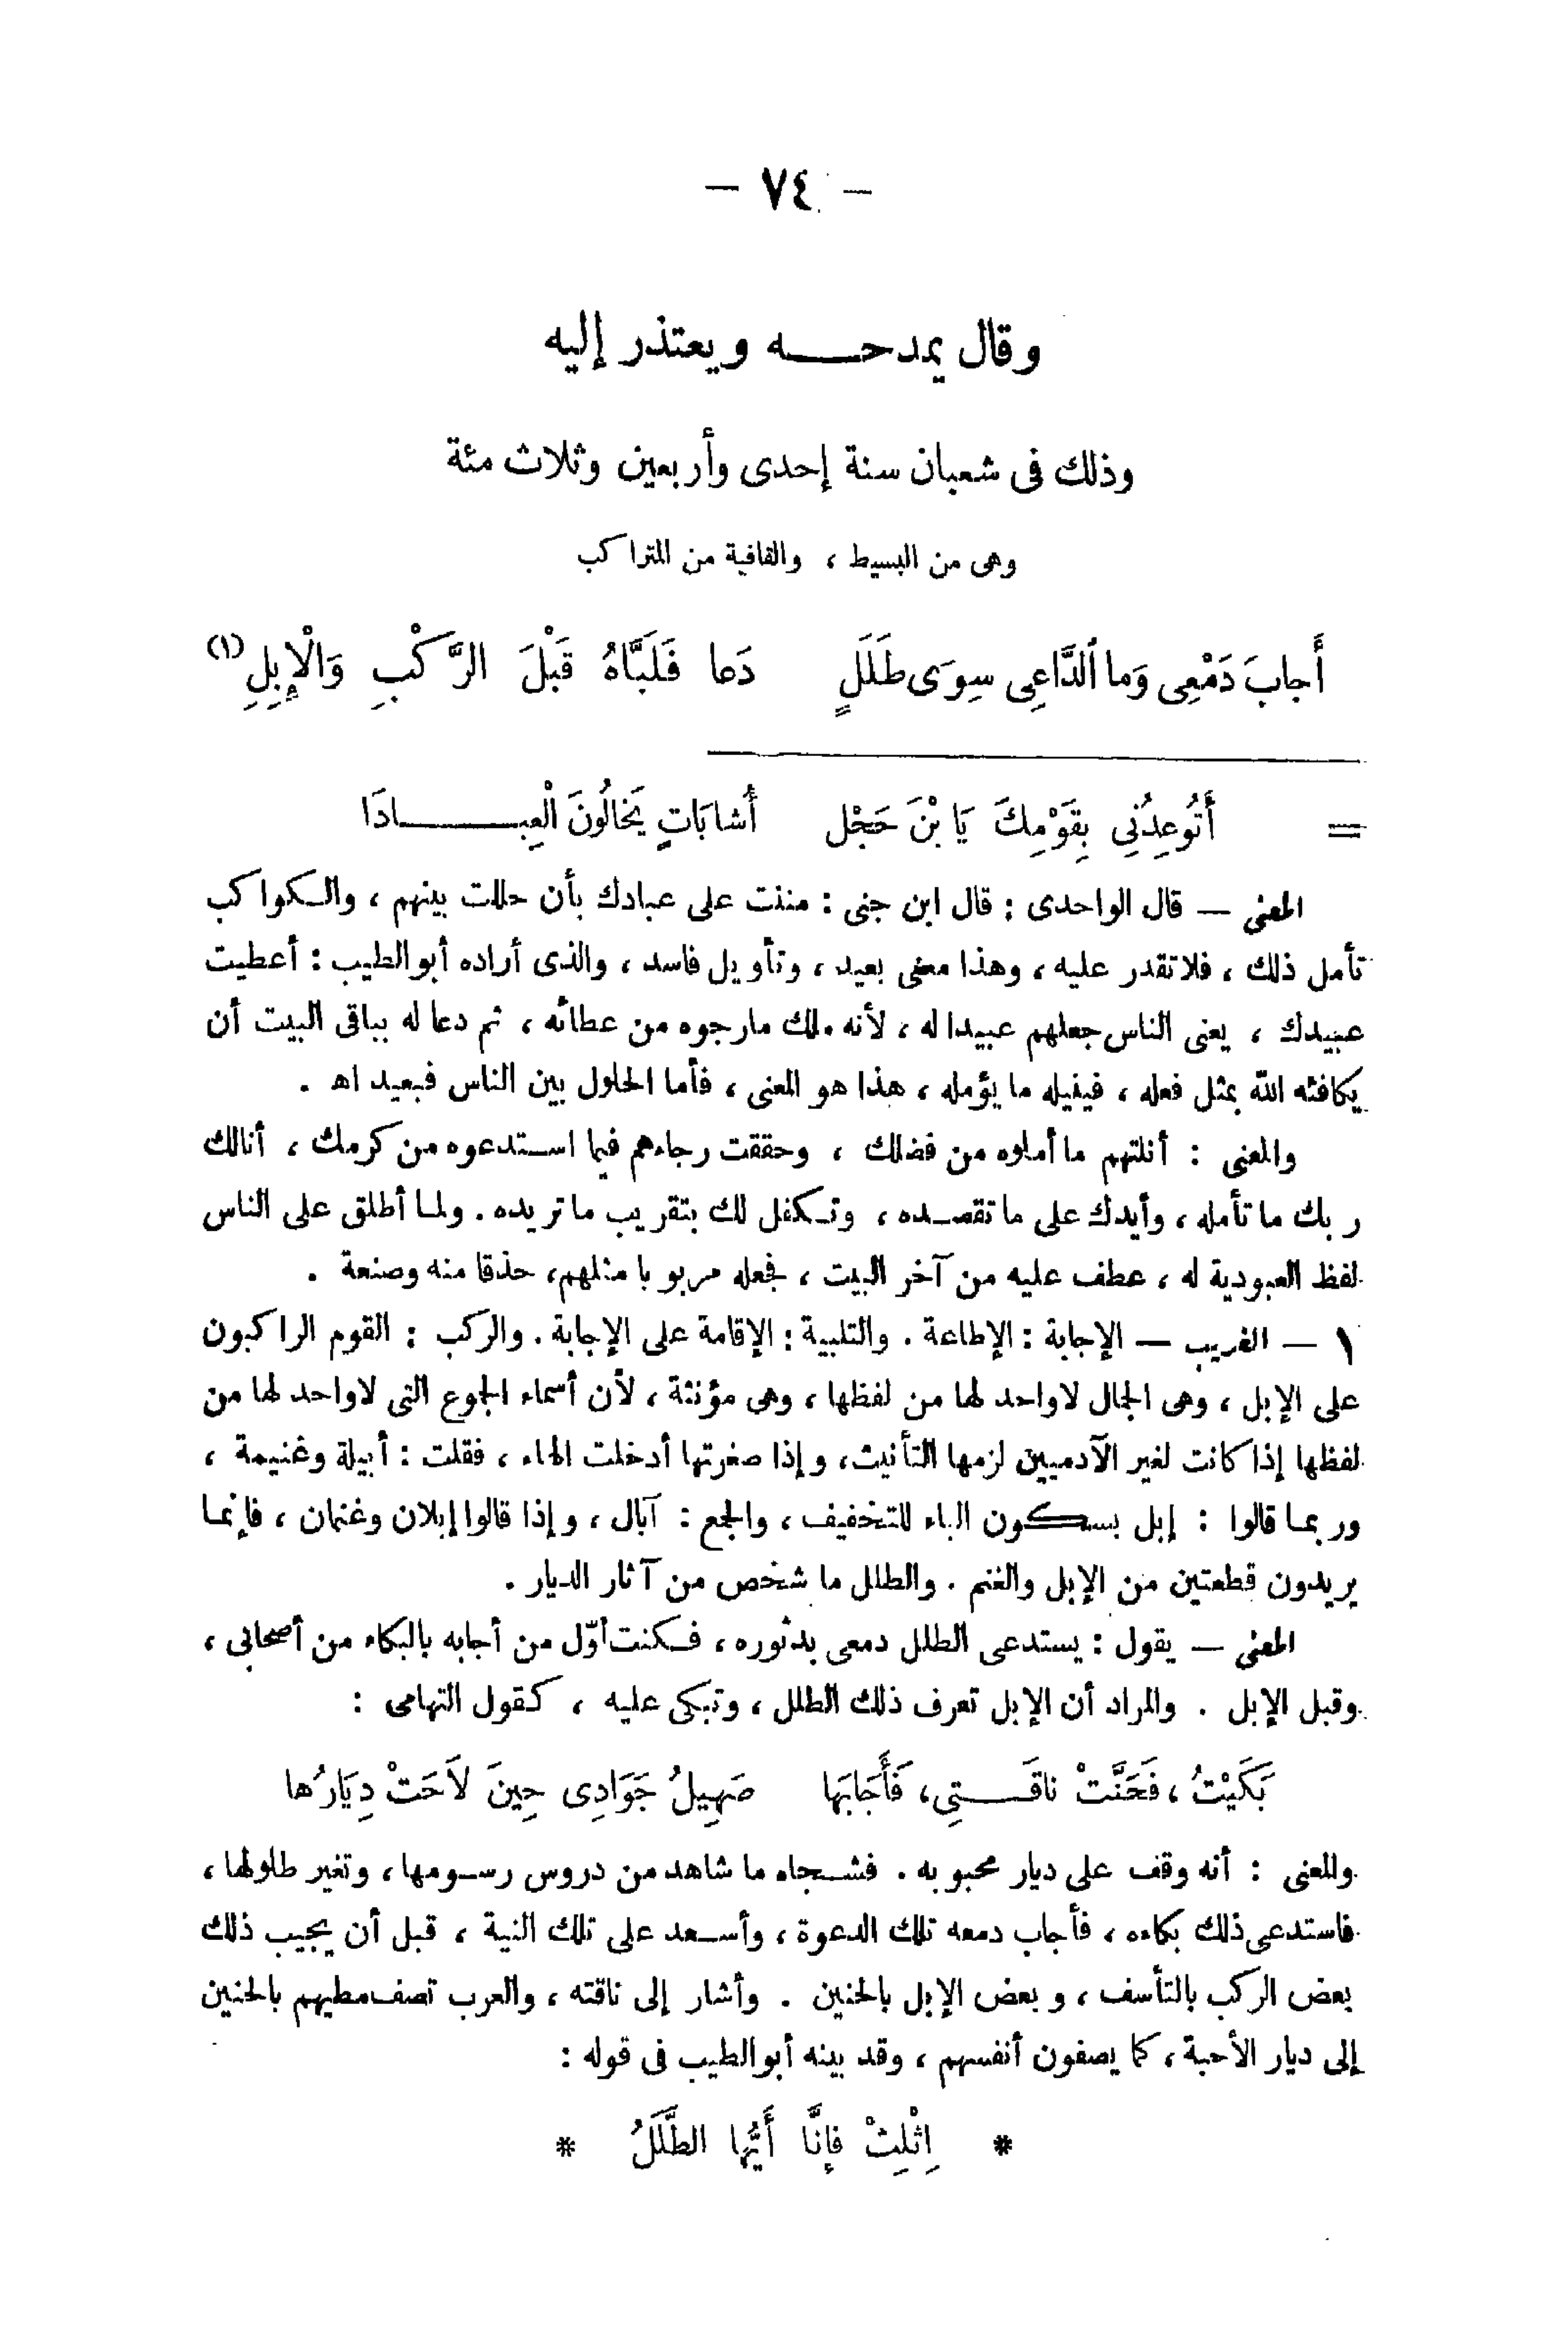 — ٧٤ —
وقال يمدحه ويعتذر إليه
وذلك فى شعبان سنة إحدى وأربعين وثلاث مئة
وهى من البسيط ، والقافية من المتراكب
أَجابَ دَمْعِى وَما ٱلدَّاعِى سِوَى طَلَلٍ دَعا فَلَبَّاهُ قَبْلَ الرَّكْبِ وَالْإِبِلِ (١)
= أَتُوعِدُنِى بِقَوْمِكَ يَا بْنَ حَجْل أُشابَاتٍ يَخالُونَ الْعِبادَا
المعنى — قال الواحدى : قال ابن جنى : مننت على عبادك بأن حللت بينهم ، والكواكب
تأمل ذلك ، فلا تقدر عليه ، وهذا معنى بعيد ، وتأويل فاسد ، والذى أراده أبو الطيب : أعطيت
عبيدك ، يعنى الناس جعلهم عبيدا له ، لأنه ملك مارجوه من عطائه ، ثم دعا له بباقى البيت أن
يكافئه الله بمثل فعله ، فينيله ما يؤمله ، هذا هو المعنى ، فأما الحلول بين الناس فبعيد اه .
والمعنى : أنلتهم ما أملوه من فضلك ، وحققت رجاءهم فيما استدعوه من كرمك ، أنالك
ربك ما تأمله ، وأيدك على ما تقصده ، وتكفل لك بتقريب ما تريده . ولما أطلق على الناس
لفظ العبودية له ، عطف عليه من آخر البيت ، فجعله مربوبا مثلهم، حذقا منه وصنعة .
١ — الغريب — الإجابة : الإطاعة . والتلبية : الإقامة على الإجابة . والركب : القوم الراكبون
على الإبل ، وهى الجمال لاواحد لها من لفظها ، وهى مؤنثة ، لأن أسماء الجموع التى لاواحد لها من
لفظها إذا كانت لغير الآدميين لزمها التأنيث، وإذا صغرتها أدخلت الهاء ، فقلت : أبيلة وغنيمة ،
وربما قالوا : إبل بسكون الباء للتخفيف ، والجمع : آبال ، وإذا قالوا إبلان وغنمان ، فإنما
يريدون قطعتين من الإبل والغنم . والطلل ما شخص من آثار الديار .
المعنى — يقول : يستدعى الطلل دمعى بدثوره ، فكنت أوّل من أجابه بالبكاء من أصحابى ،
وقبل الإبل . والمراد أن الإبل تعرف ذلك الطلل ، وتبكى عليه ، كقول التهامى :
بَكَيْتُ ، فَحَنَّتْ ناقَتِى، فَأَجَابَهَا صَهِيلُ جَوَادِى حِينَ لاَحَتْ دِيَارُها
والمعنى : أنه وقف على ديار محبوبه . فشجاه ما شاهد من دروس رسومها ، وتغير طلولها ،
فاستدعى ذلك بكاءه ، فأجاب دمعه تلك الدعوة ، وأسعد على تلك النية ، قبل أن يجيب ذلك
بعض الركب بالتأسف ، وبعض الإبل بالحنين . وأشار إلى ناقته ، والعرب تصف مطيهم بالحنين
إلى ديار الأحبة ، كما يصفون أنفسهم ، وقد بينه أبو الطيب فى قوله :
* اِثْلِثْ فإِنَّا أَيُّها الطَّلَلُ *